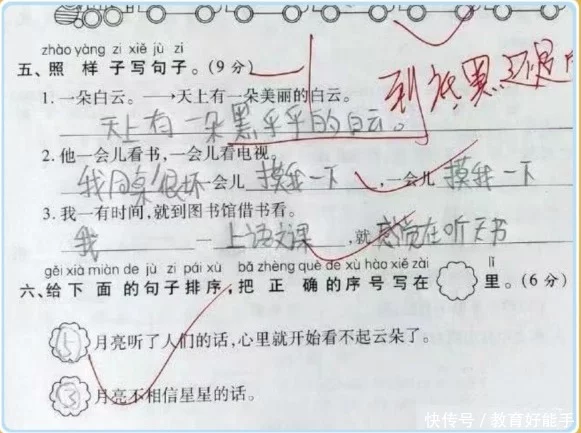 zhào yàng zi xiě jù zi
五、照 样 子写句子。(9分)
1. 一朵白云。 ⟶天上有一朵美丽的白云。
到底黑还是
天上有一朵黑乎乎的白云。
2. 他一会儿看书,一会儿看电视。
我同桌很坏一会儿 摸我一下 ,一会儿 摸我一下
3. 我一有时间,就到图书馆借书看。
我 一 上语文课 ,就 感觉在听天书
gěi xià miàn de jù zi pái xù bǎ zhèng què de xù hào xiě zài lǐ
六、给 下 面 的句子排序,把 正 确的序号写在 里。(6分)
5 月亮听了人们的话,心里就开始看不起云朵了。
3 月亮不相信星星的话。
快传号/教育好能手